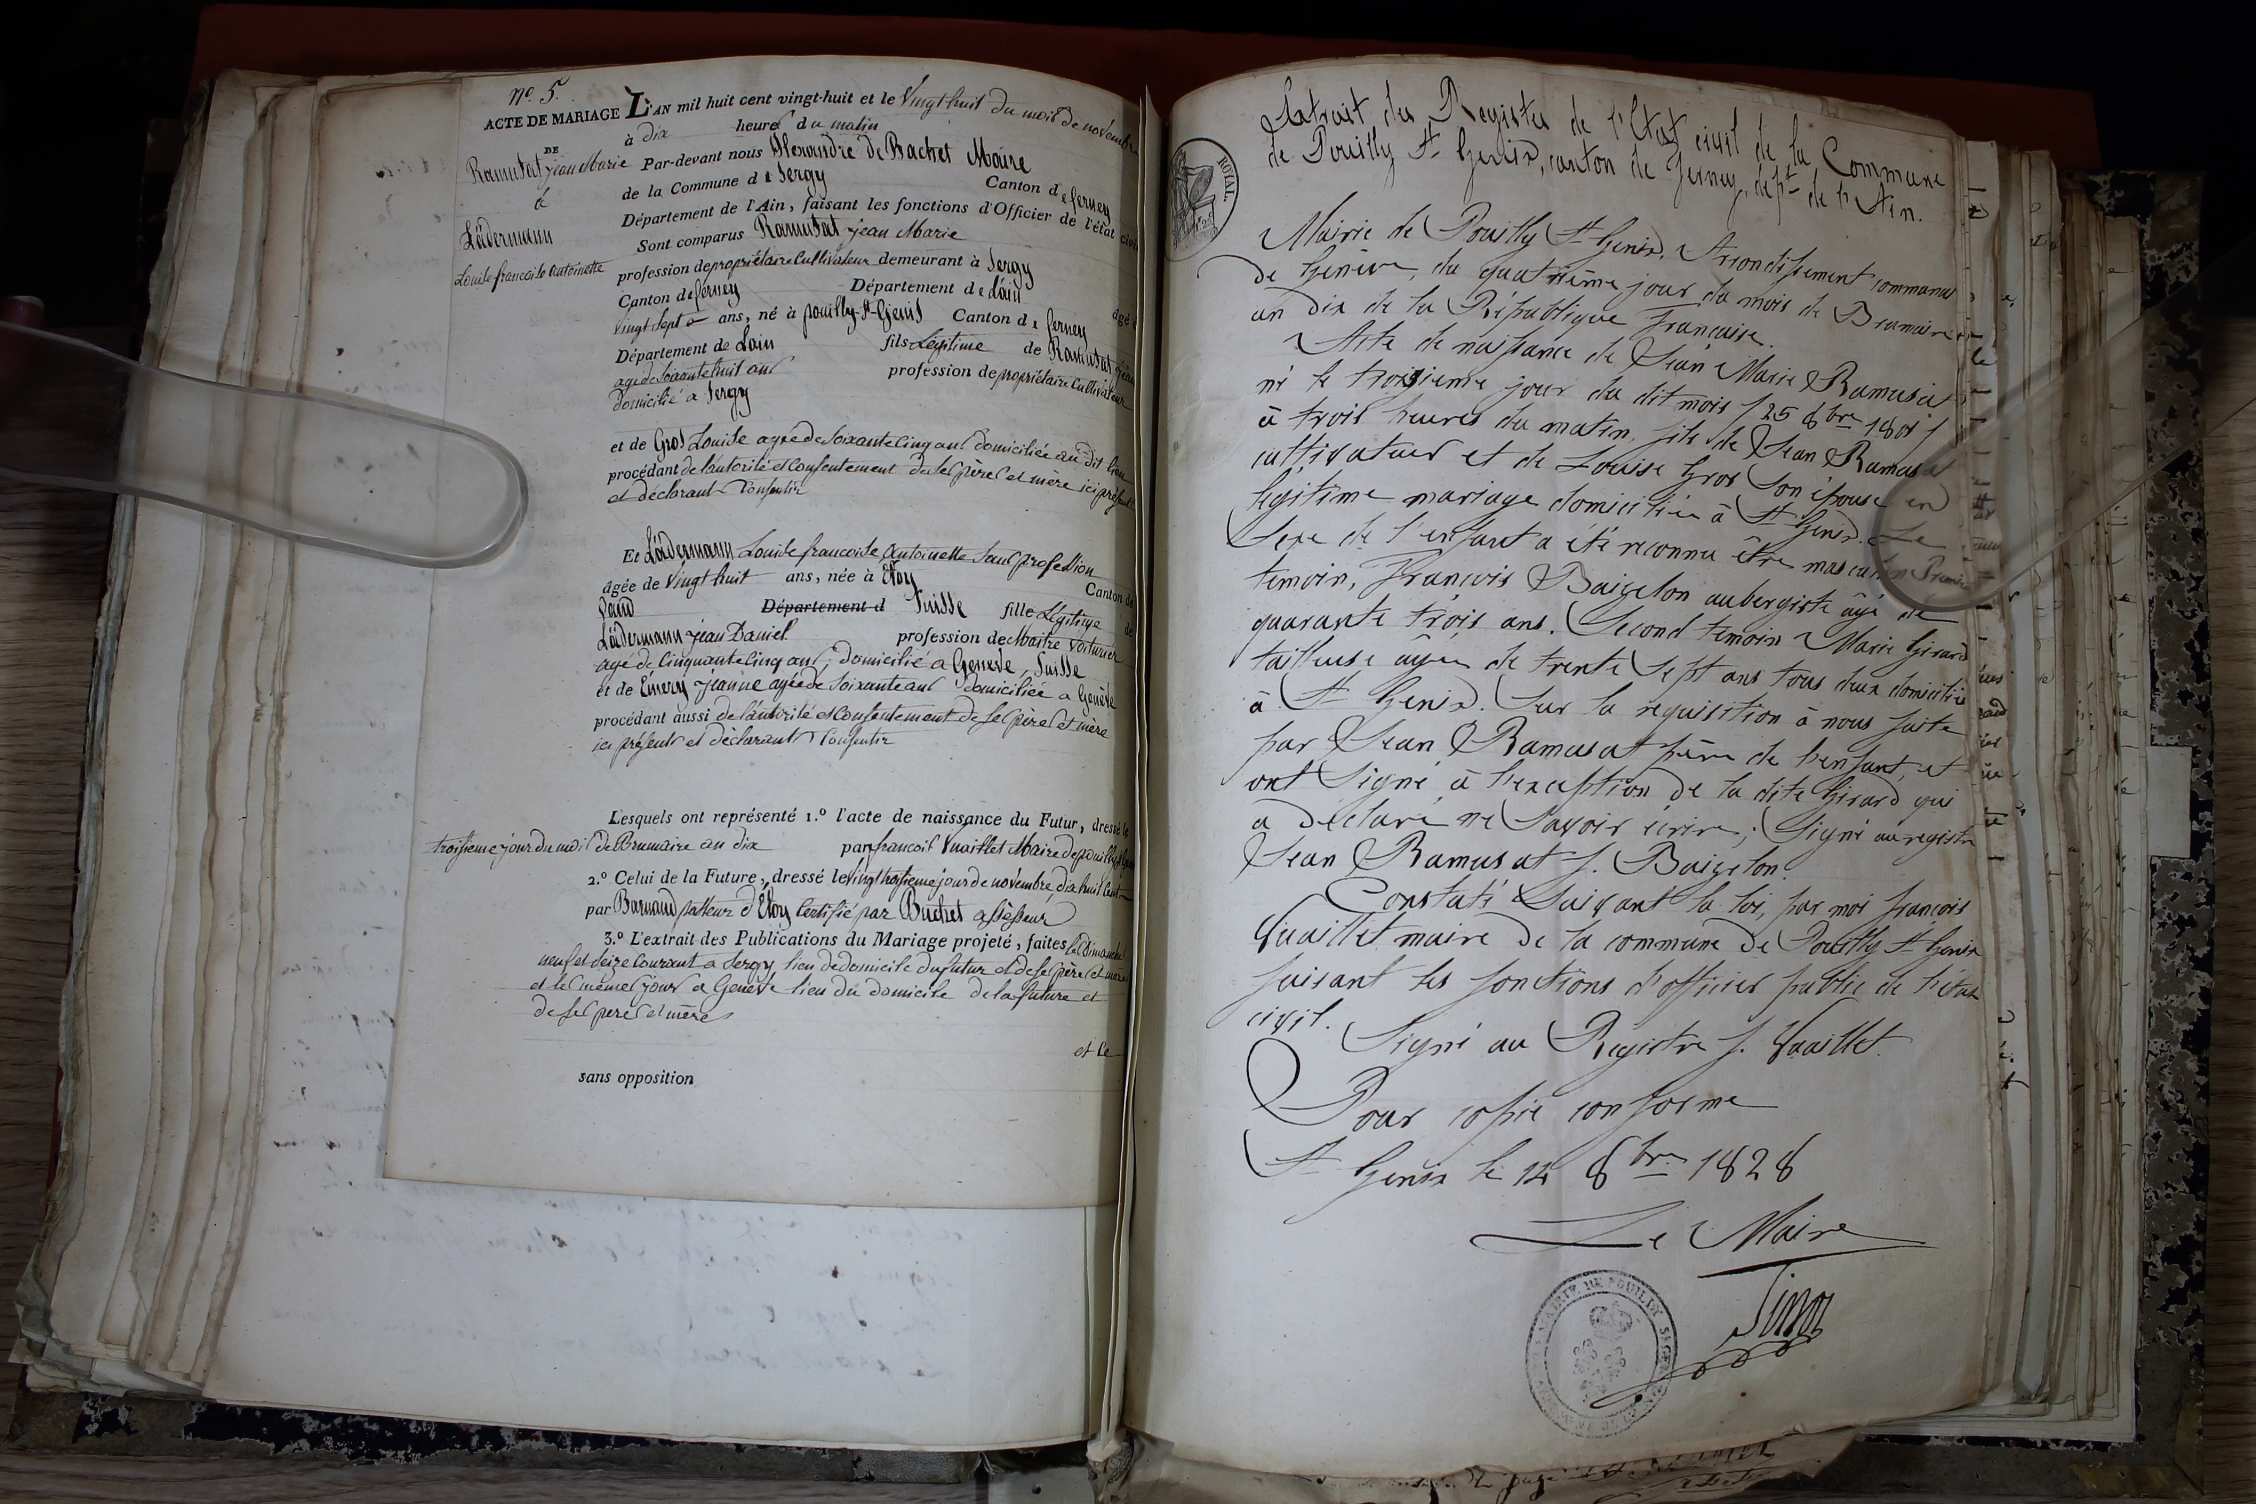 No. 5.
ACTE DE MARIAGE
DE
Ramusat jean Marie
&
Lädermann
Louise francoise Antoinette
L'AN mil huit cent vingt-huit et le Vingt huit du mois de novembre
à dix heures du matin
Par-devant nous Alexandre De Bachet Maire
de la Commune de Sergy Canton de ferney
Département de l'Ain, faisant les fonctions d'Officier de l'état civil
Sont comparus Ramusat jean Marie
profession de propriétaire Cultivateur demeurant à Sergy
Canton de ferney Département de L'ain âgé
Vingt Sept ans, né à pouilly-St-Genis Canton de ferney
Département de Lain fils Légitime de Ramusat jean
agé de Soixante huit ans profession de propriétaire Cultivateur
Domicilié a Sergy
et de Gros Louise agée de Soixante Cinq ans Domiciliée au dit lieu
procédant de l'autorité et Consentement de ses père et mère ici présents
et déclarant Consentir
Et Lädermann Louise francoise Antoinette Sans profession
âgée de Vingt huit ans, née à Etoy Canton de
Vaud Département d Suisse fille Légitime de
Lädermann jean Daniel profession de Maitre Voiturier
agé de Cinquante Cinq ans, domicilié a Geneve, Suisse
et de Emery jeanne agée de Soixante ans Domiciliée a Genève
procédant aussi de l'autorité et Consentement de ses père et mère
ici présents et déclarant Consentir
Lesquels ont représenté 1.º l'acte de naissance du Futur, dressé le
troisieme jour du mois de Brumaire an dix par francois Vuaillet Maire de pouilly St Genis
2.º Celui de la Future, dressé le Vingt troisieme jour de novembre, dix huit Cent
par Barnaud pasteur d'Etoy Certifié par Buchet assesseur
3.º L'extrait des Publications du Mariage projeté, faites les Dimanche
neuf et Seize Courant a Sergy lieu de domicile du futur et de ses père et mère
et les mêmes jours a Genève lieu du domicile de la future et
de ses père et mère
et le
sans opposition
ROYAL
Extrait des Registes de l'Etat civil de la Commune
de Pouilly St Genix, canton de Ferney, dept de l'Ain.
Mairie de Pouilly St Genix. Arrondissement communal
de Genève, du quatrième jour du mois de Brumaire
an dix de la République Francaise.
Acte de naissance de Jean Marie Ramusat
né le troisieme jour du dit mois / 25 8bre 1801 /
à trois heures du matin, fils de Jean Ramusat
cultivateur et de Louise Gros son épouse en
légitime mariage domiciliés à St Genix. Le
Sexe de l'enfant a été reconnu être masculin Premier
temoin, François Baigelon aubergiste âgé de
quarante trois ans. Second temoin Marie Girard
tailleuse âgée de trente Sept ans tous deux domiciliés
à St Genix. Sur la requisition à nous faite
par Jean Ramusat père de l'enfant, et
ont Signé à l'exception de la dite Girard qui
a déclaré ne Savoir écrire; Signé au registre
Jean Ramusat f. Baigelon.
Constaté Suivant la loi, par moi françois
Vuaillet maire de la commune de Pouilly St Genix
faisant les fonctions d'officier public de l'état
civil.
Signé au Registre f. Vuaillet.
Pour copie conforme
St Genix le 14 8bre 1828
Le Maire
MAIRIE DE POUILLY ST GENIX